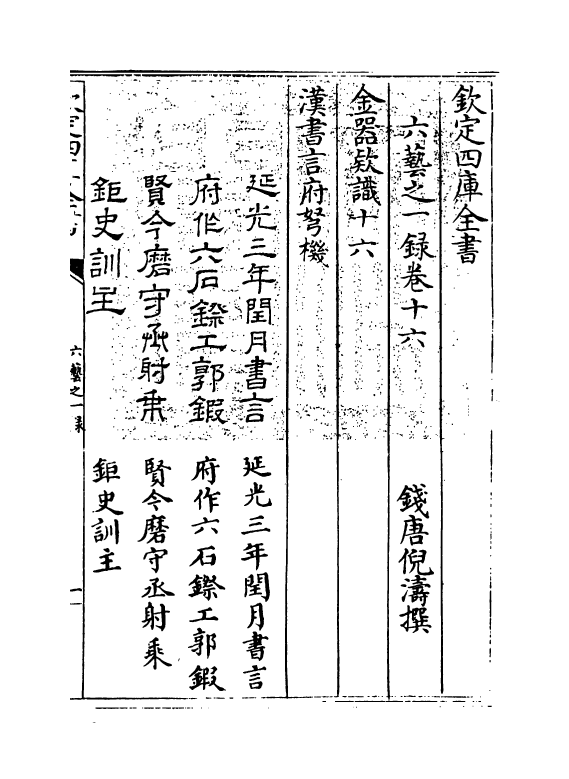 欽定四庫全書
六藝之一録卷十六
錢唐倪濤撰
金器欵識十六
漢書言府弩機
延光三年閏月書言
府作六石鏼工郭鍜
賢令磨守丞射乗
鉅史訓主
延光三年閏月書言
府作六石鏼工郭鍜
賢令磨守丞射乗
鉅史訓主
欽定四庫全書
六藝之一録
一